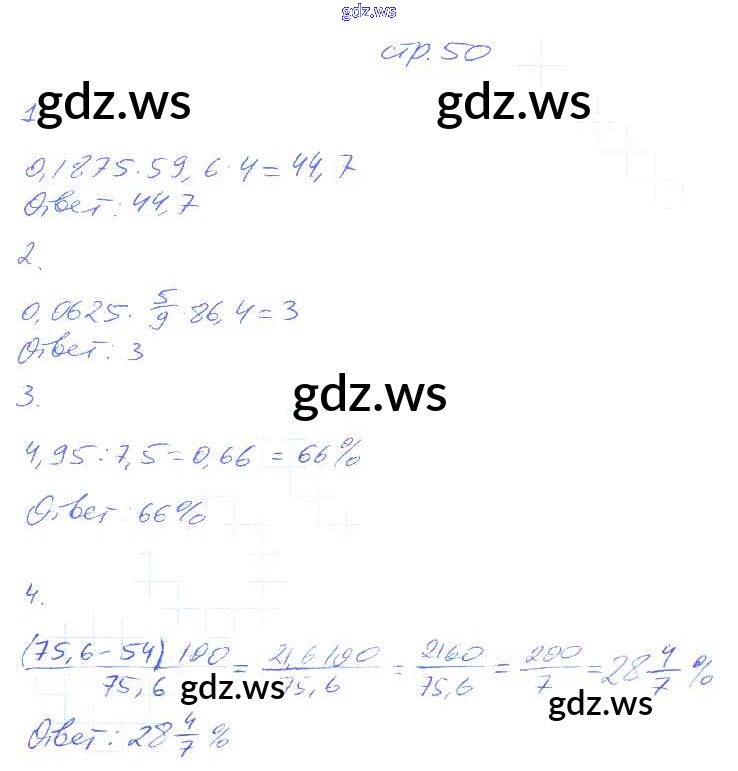 gdz.ws
стр. 50
1 gdz.ws gdz.ws
0,1875·59,6·4=44,7
Ответ: 44,7
2.
0,0625·5/9·86,4=3
Ответ: 3
3.
gdz.ws
4,95:7,5=0,66=66%
Ответ: 66%
4.
(75,6-54)100/75,6=21,6 100/75,6=2160/75,6=200/7=28 4/7 %
gdz.ws gdz.ws
Ответ: 28 4/7 %